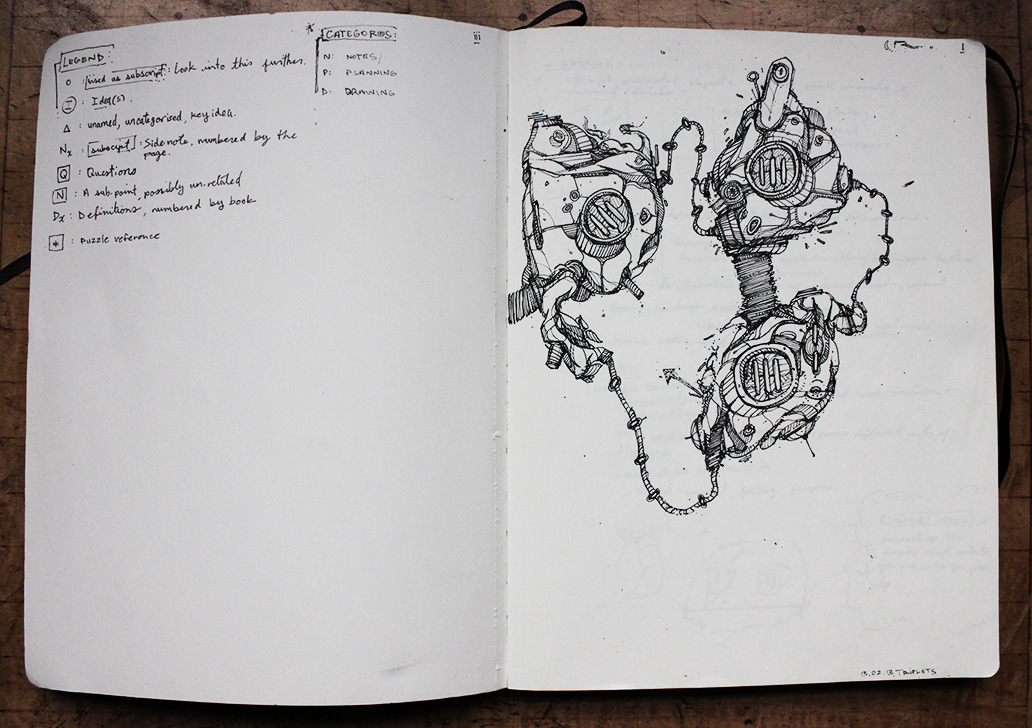 LEGEND
o : [used as subscript] : Look into this further.
I : Idea(s).
Δ : unnamed, uncategorised, key idea.
Nx : [subscript] : Sidenote, numbered by the
page.
Q : Questions
N : A sub.point, possibly un-related
Dx : Definitions, numbered by book
* : Puzzle reference
* CATEGORIES:
N: NOTES/
P: PLANNING
D: DRAWING
iii
1
13.02.13 TRIPLETS